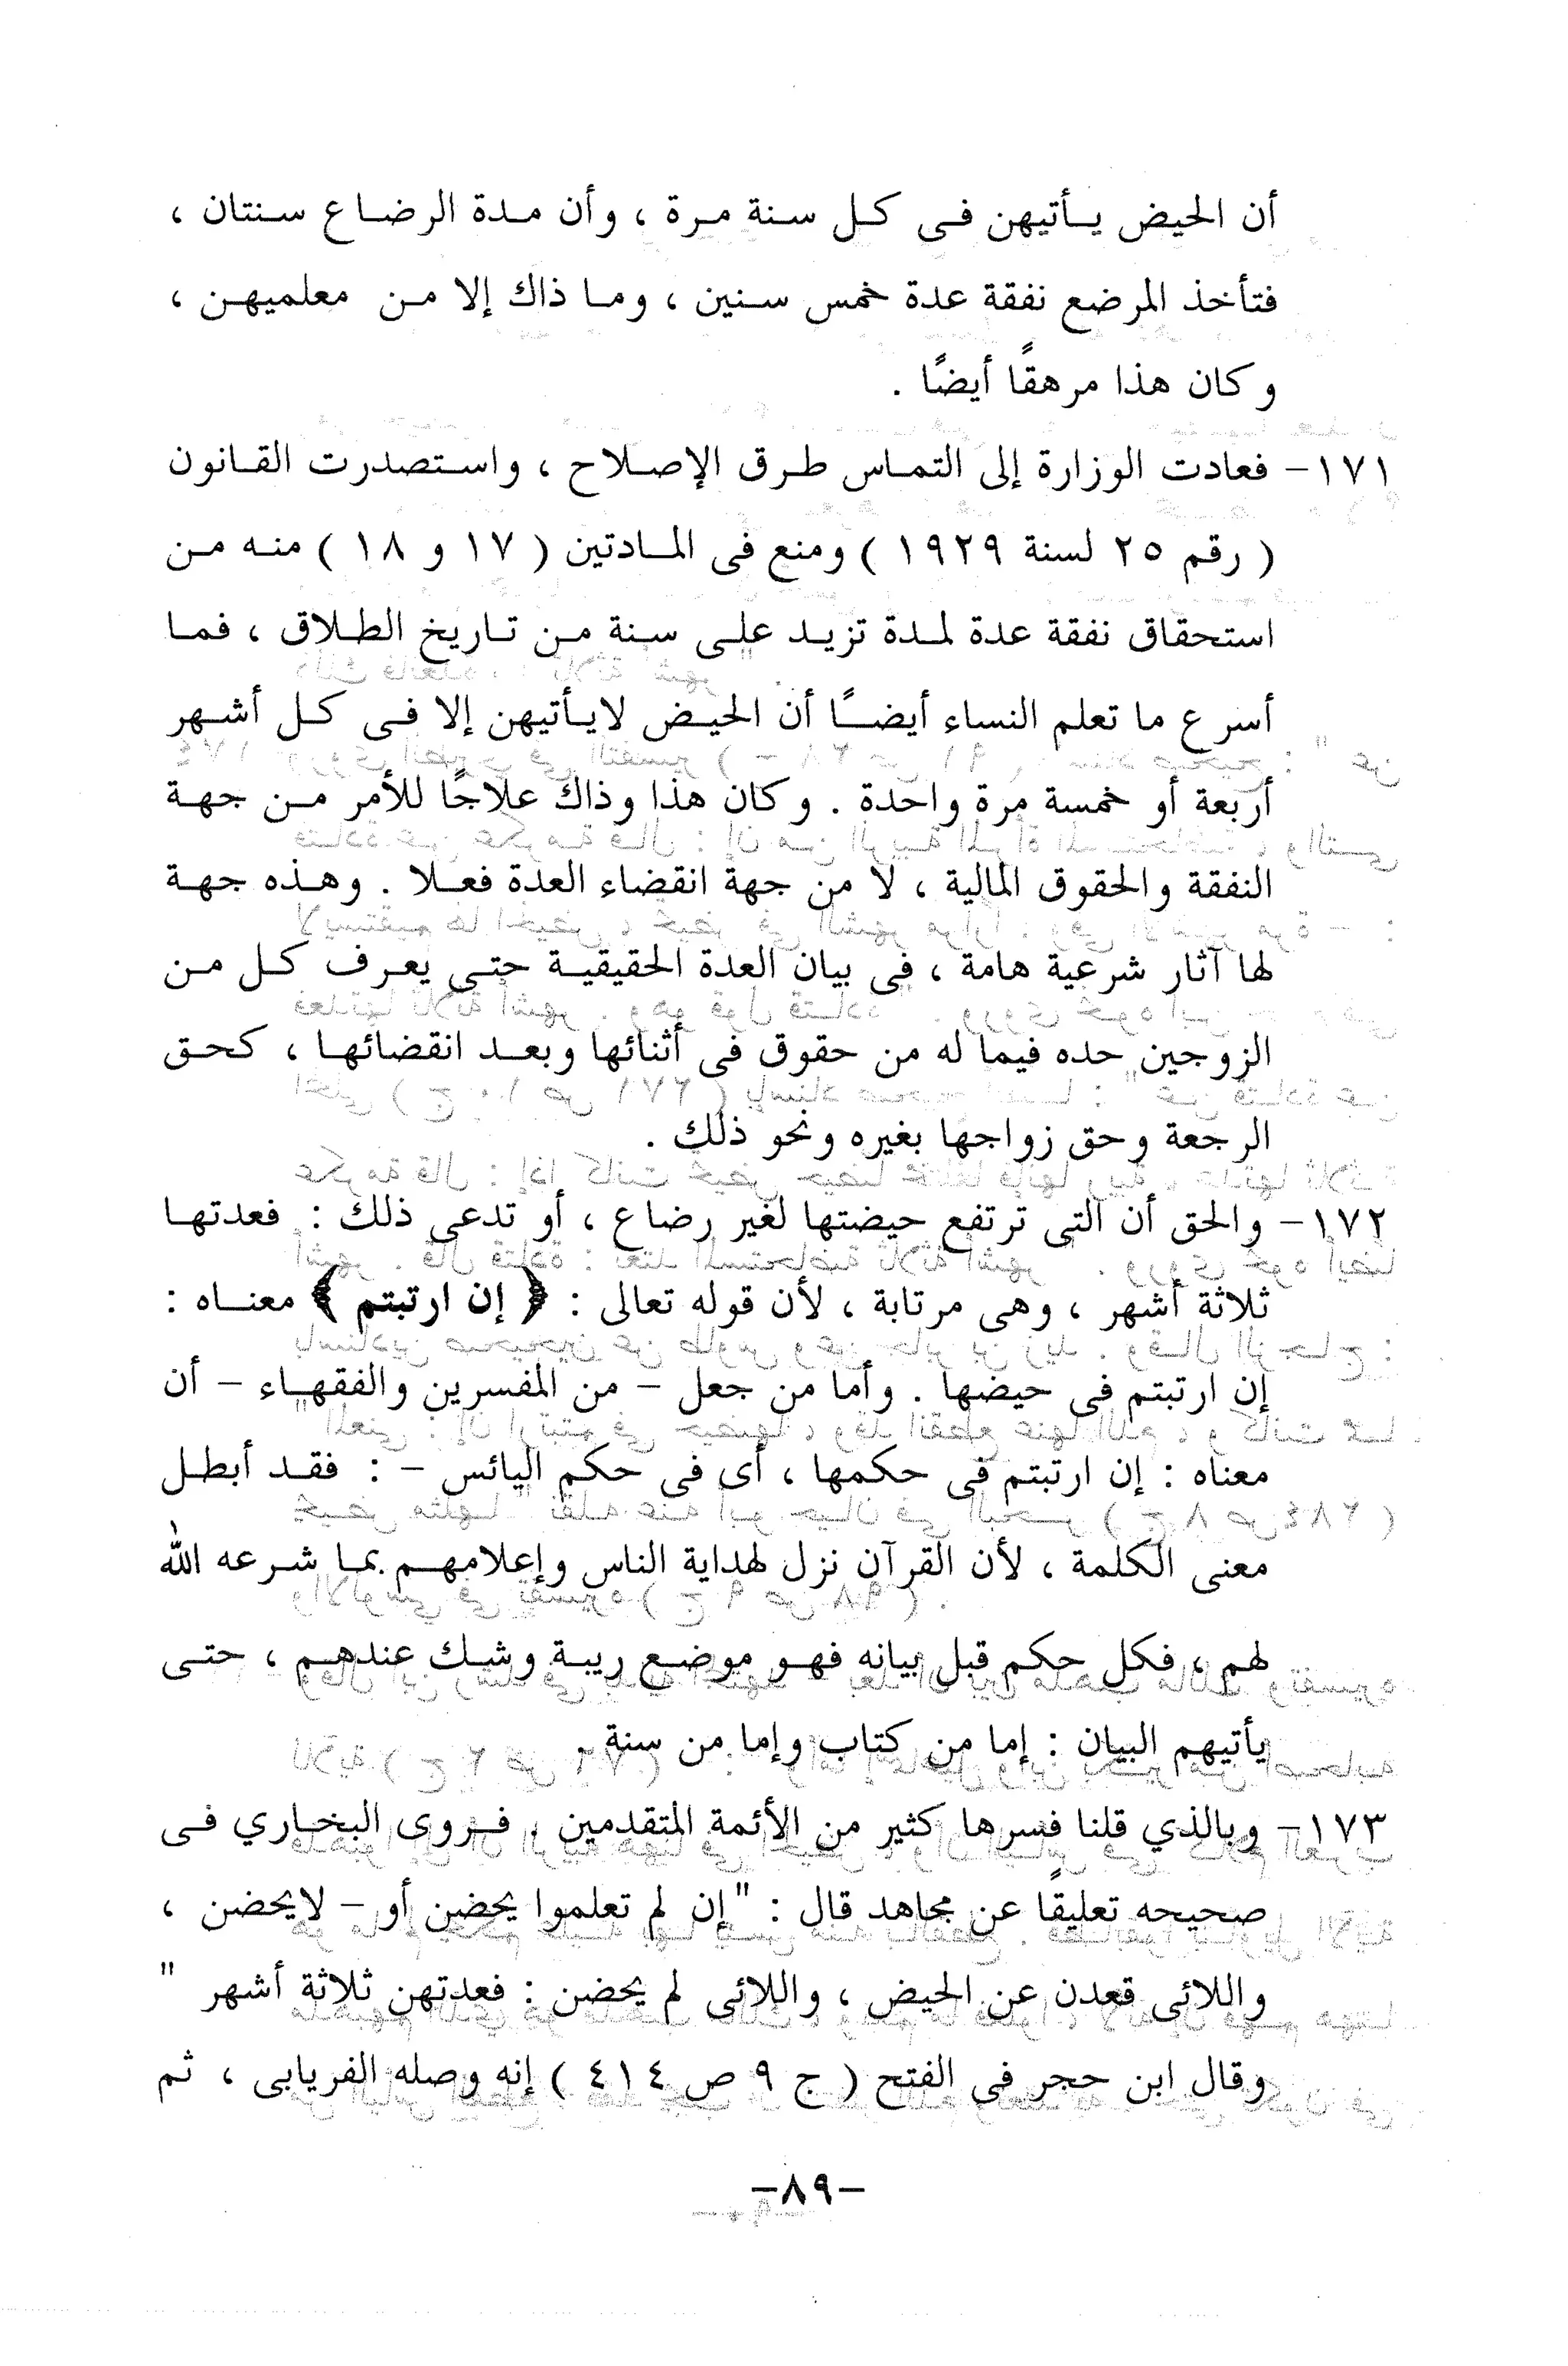 أن الحيض يأتيهن فى كل سنة مرة ، وأن مدة الرضاع سنتان ،
فتأخذ المرضع نفقة عدة خمس سنين ، وما ذاك إلا من معلميهن ،
وكان هذا مرهقًا أيضًا .
١٧١- فعادت الوزارة إلى التماس طرق الإصلاح ، واستصدرت القانون
( رقم ٢٥ لسنة ١٩٢٩ ) ومنع فى المادتين ( ١٧ و ١٨ ) منه من
استحقاق نفقة عدة لمدة تزيد على سنة من تاريخ الطلاق ، فما
أسرع ما تعلم النساء أيضًا أن الحيض لايأتيهن إلا فى كل أشهر
أربعة أو خمسة مرة واحدة . وكان هذا وذاك علاجًا للأمر من جهة
النفقة والحقوق المالية ، لا من جهة انقضاء العدة فعلا . وهذه جهة
لها آثار شرعية هامة ، فى بيان العدة الحقيقية حتى يعرف كل من
الزوجين حده فيما له من حقوق فى أثنائها وبعد انقضائها ، كحق
الرجعة وحق زواجها بغيره ونحو ذلك .
١٧٢- والحق أن التى ترتفع حيضتها لغير رضاع ، أو تدعى ذلك : فعدتها
ثلاثة أشهر ، وهى مرتابة ، لأن قوله تعالى : ﴿ إن ارتبتم ﴾ معناه :
إن ارتبتم فى حيضها . وأما من جعل - من المفسرين والفقهاء - أن
معناه : إن ارتبتم فى حكمها ، أى فى حكم اليائس - : فقد أبطل
معنى الكلمة ، لأن القرآن نزل لهداية الناس وإعلامهم بما شرعه الله
لهم ، فكل حكم قبل بيانه فهو موضع ريبة وشك عندهم ، حتى
يأتيهم البيان : إما من كتاب وإما من سنة .
١٧٣- وبالذي قلنا فسرها كثير من الأئمة المتقدمين ، فروى البخاري فى
صحيحه تعليقًا عن مجاهد قال : "إن لم تعلموا يحضن أو - لايحضن ،
واللائى قعدن عن الحيض ، واللائى لم يحضن : فعدتهن ثلاثة أشهر "
وقال ابن حجر فى الفتح ( ج ٩ ص ٤١٤ ) إنه وصله الفريابى ، ثم
-٨٩-